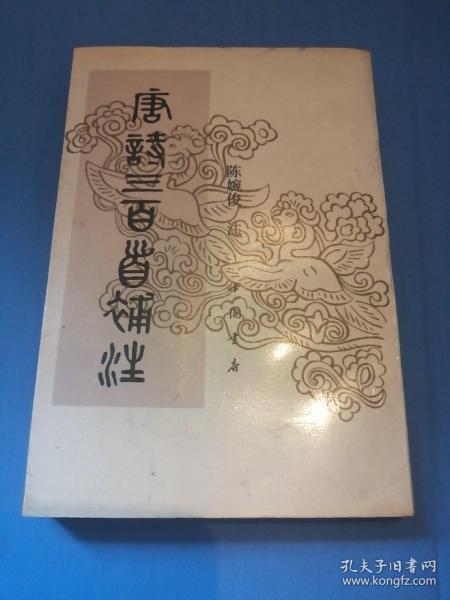 唐詩三百首補注
陈婉俊 注
中国書店
孔夫子旧书网
www.kongfz.com